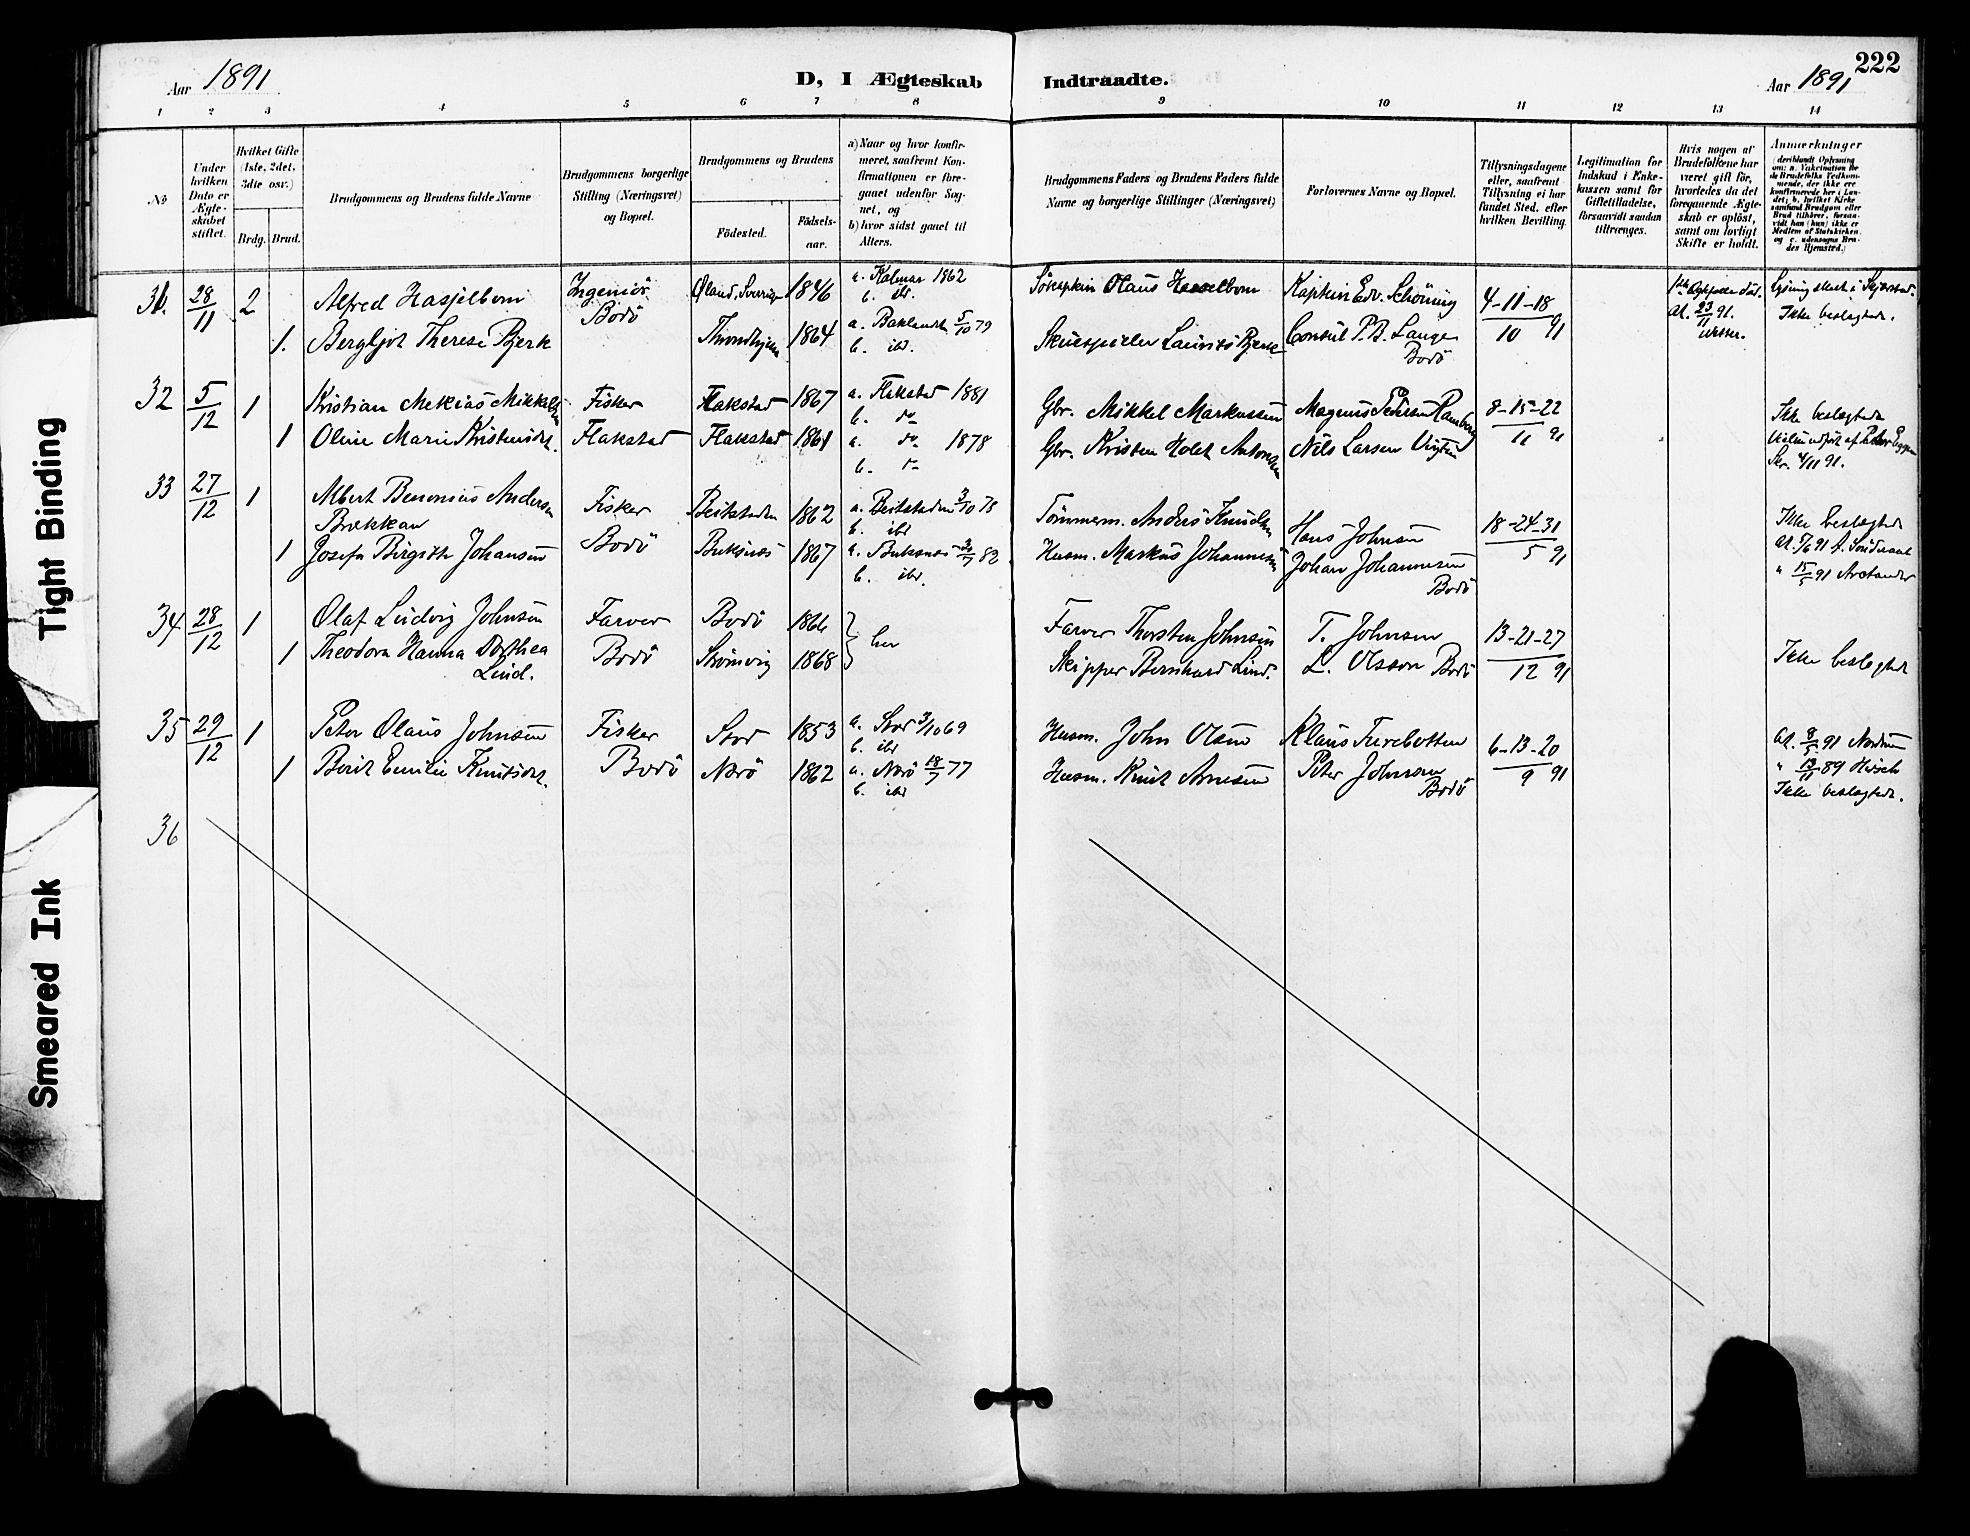 222
Aar 1891
D, I Ægteskab Indtraadte.
Aar 1891
1 2 3 4 5 6 7 8 9 10 11 12 13 14
No
Under hvilken Dato er Ægteskabet stiftet.
Hvilket Gifte (1ste, 2det, 3die osv.)
Brdg. Brud.
Brudgommens og Brudens fulde Navne
Brudgommens borgerlige Stilling (Næringsvei) og Bopæl.
Brudgommens og Brudens
Födested.
Födselsaar.
a) Naar og hvor konfirmeret, saafremt Konfirmationen er foregaaet udenfor Sognet, og
b) hvor sidst gaaet til Alters.
Brudgommens Faders og Brudens Faders fulde Navne og borgerlige Stillinger (Næringsvei)
Forlovernes Navne og Bopæl.
Tillysningsdagene eller, saafremt Tillysning ei har fundet Sted, efter hvilken Bevilling.
Legitimation for Indskud i Enkekassen samt for Giftetilladelse, forsaavidt saadan tiltrænges.
Hvis nogen af Brudefolkene har været gift før, hvorledes da det foregaaende Ægteskab er oplöst, samt om lovligt Skifte er holdt.
Anmærkninger
31. 28/11 2 Alfred Hasselbom Ingeniör Öland, Sverige 1846 a. Kalmar 1862 Sökaptein Olaus Hasselbom Kaptein Edv. Schöning 4-11-18
Bodö b. ibd. 23/11 91.
1. Bergljot Therese Bjerk Throndhjem 1864 a. Baklandet 5/10 79 Skuespiller Laurits Bjerk Consul P. B. Lange 10 91 Ikke beslægtede.
b. ibd. Bodö
32 5/12 1 Kristian Mekias Mikkelsen Fisker Flakstad 1867 a. Flakstad 1881 Gbr. Mikkel Markussen Magnus Pedersen Ramberg 8-15-22
b. do Ikke beslægtede
1 Oline Marie Kristensdt. Flakstad Flakstad 1861 a. do 1878 Gbr. Kristen Holck Antonsen Nils Larsen 11 91
b. do 4/11 91.
33 27/12 1 Albert Benonius Andersen Fisker Beitstaden 1862 a. Beitstaden 3/10 78 Tömmerm. Anders Knudsen Hans Johnsen 18-24-31 Ikke beslægtede
Brækkan b. ibd
1 Josefa Birgitte Johansen Bodö Buksnæs 1867 a. Buksnæs 30/7 82 Husm. Markus Johannesen Johan Johannesen 5 91
b. ibd. Bodö " 15/5 91 Arctander
34 28/12 1 Olaf Ludvig Johnsen Farver Bodö 1866 her Farver Thorsten Johnsen T. Johnsen 13-21-27
1 Theodora Hanna Dorthea Bodö Strömvig 1868 Skipper Bernhard Lind. L. Olsson Bodö 12 91 Ikke beslægtede
Lind.
35 29/12 1 Peter Olaus Johnsen Fisker Stod 1853 a. Stod 3/10 69 Husm. John Olsen Klaus Turebotten 6-13-20 At. 8/5 91
b. ibd
1 Berit Emilie Knutsdt. Bodö Nærö 1862 a. Nærö 18/7 77 Husm. Knut Arnesen Peter Johnsen 9 91 " 13/11 89 Hirsch
b. ibd Bodö Ikke beslægtede.
36
Tight Binding
Smeared Ink